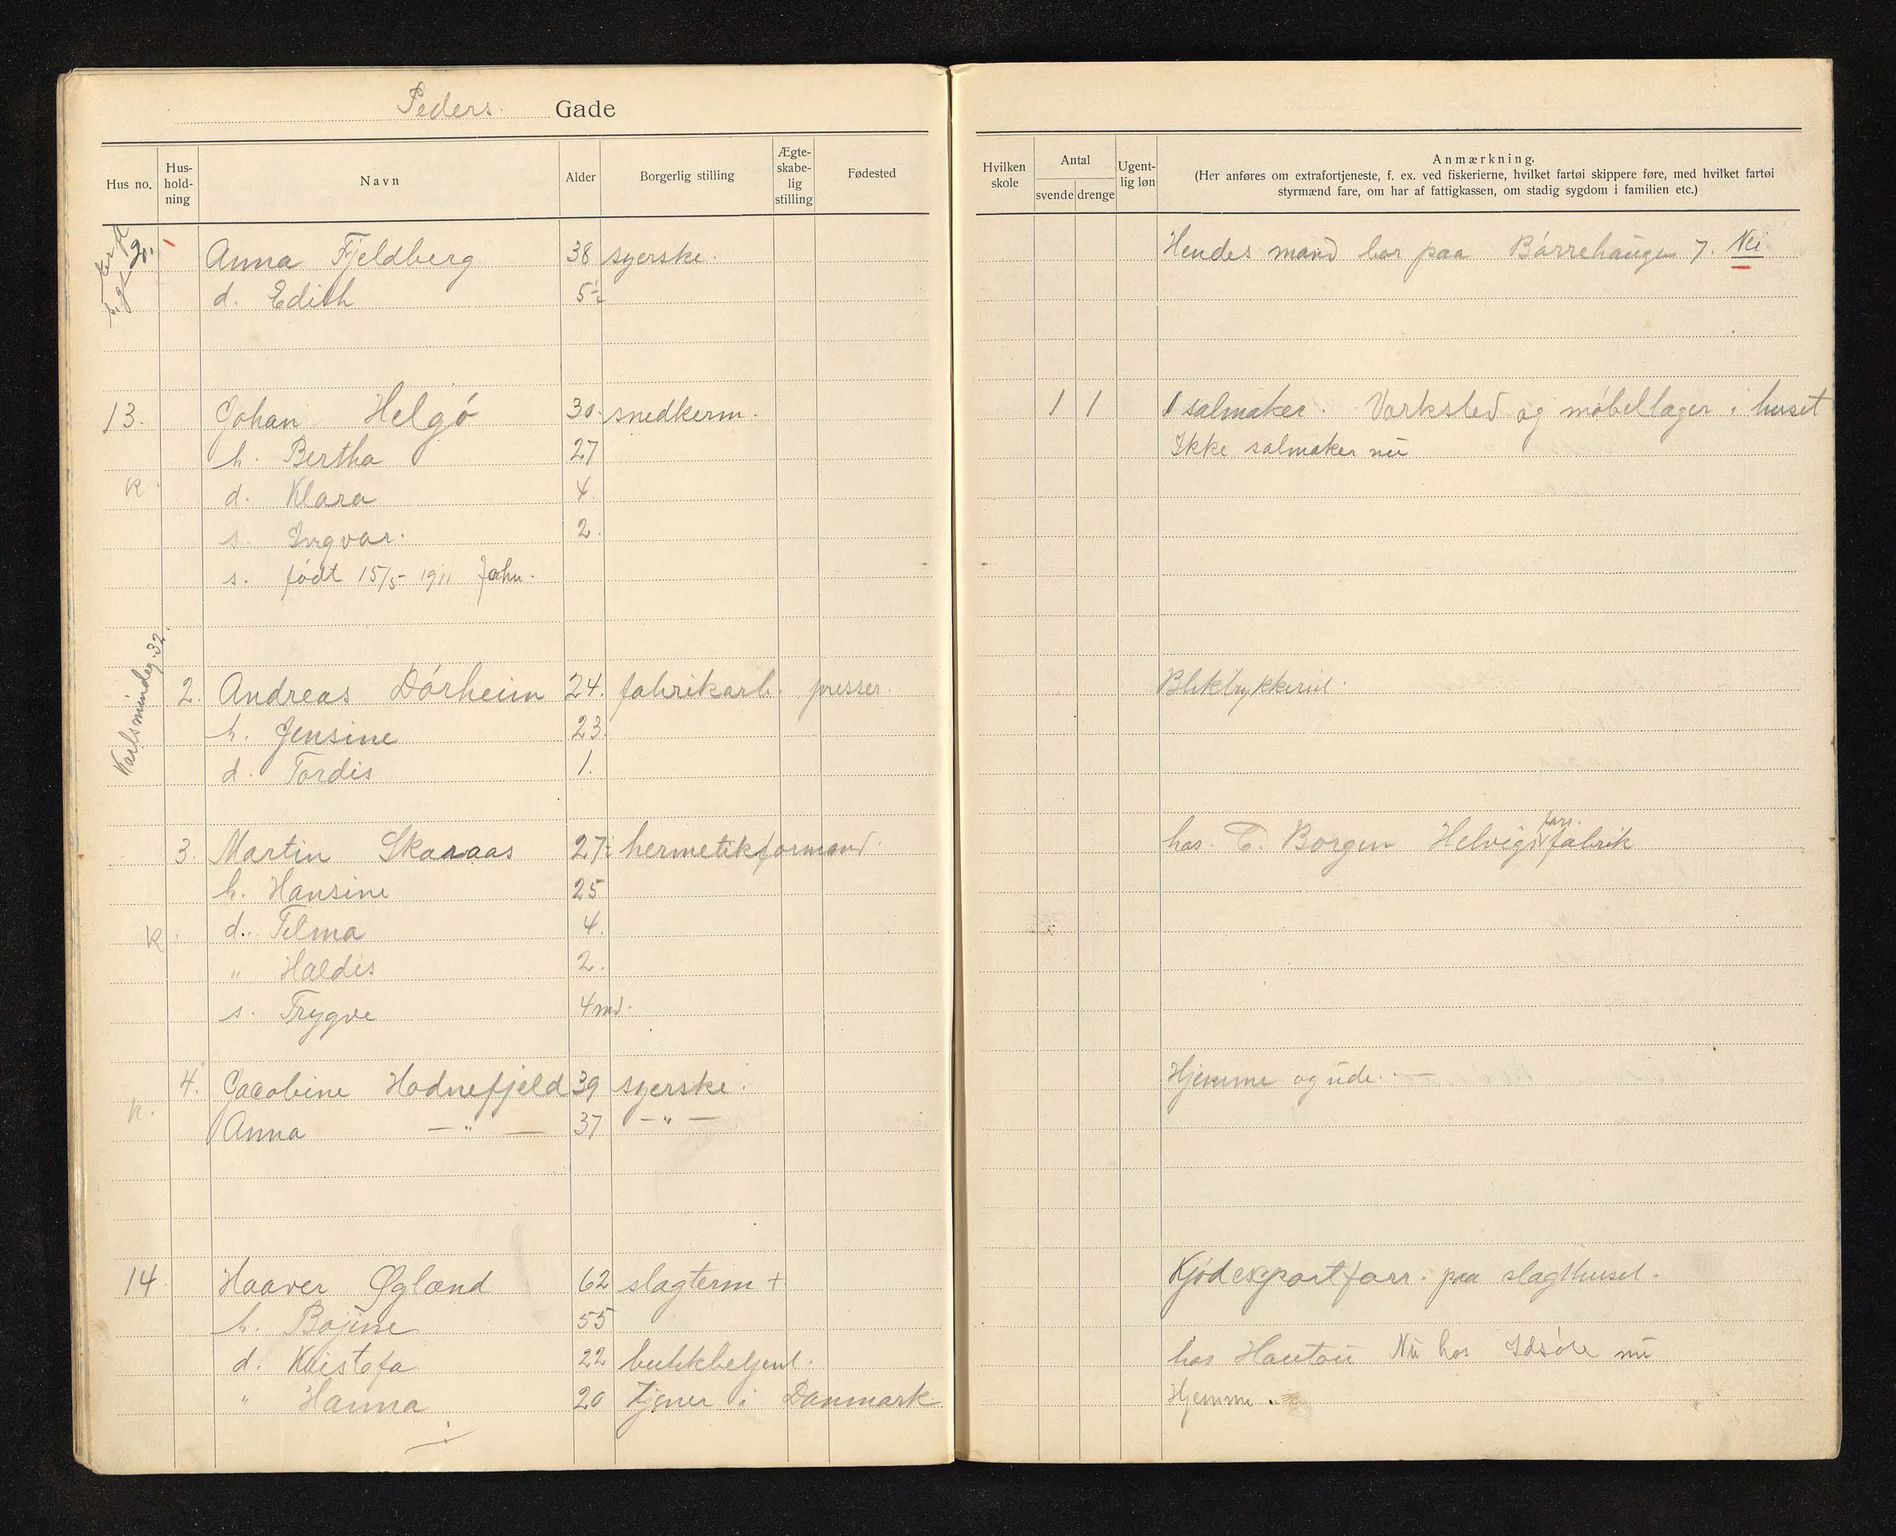 Peders. Gade
Hus no. Hus-hold-ning Navn Alder Borgerlig stilling Ægte-skabe-lig stilling Fødested
2. Anna Fjeldberg 38 syerske.
d. Edith 5½
13. Johan Helgó 30. snedkerm.
h. Bertha 27
k. d. Klara 4.
s. Ingvar. 2.
s. født 15/5- 1911 John.
Karlsmindeg. 32.
2. Andreas Dórheim 24. fabrikarb. presser.
h. Jensine 23.
d. Tordis 1.
3. Martin Skaraas 27. hermetikformand.
h. Hansine 25
k. d. Telma 4.
„ Haldis 2.
s. Trygve 4 md.
4. Jacobine Hodnefjeld 39 syerske.
k. Anna — „ — 37 — „ —
14. Haaver Øglænd 62 slagterm +
h. Bojine 55
d. Kristofa 22 butikbetjent.
„ Hanna 20 tjener i Danmark
Hvilken skole Antal svende drenge Ugent-lig løn Anmærkning.
(Her anføres om extrafortjeneste, f. ex. ved fiskerierne, hvilket fartøi skippere føre, med hvilket fartøi
styrmænd fare, om har af fattigkassen, om stadig sygdom i familien etc.)
Hendes mand bor paa Bórrehaugen 7. Nei
1 1 1 salmaker. Verksted og møbellager i huset
Ikke salmaker nu
Bliktrykkeriet.
hos C. Borgen Helvigs farr. fabrik
Hjemme og ude. —
Kjødexportforr. paa slagthuset.
hos Nu hos Idsøe nu
Hjemme.